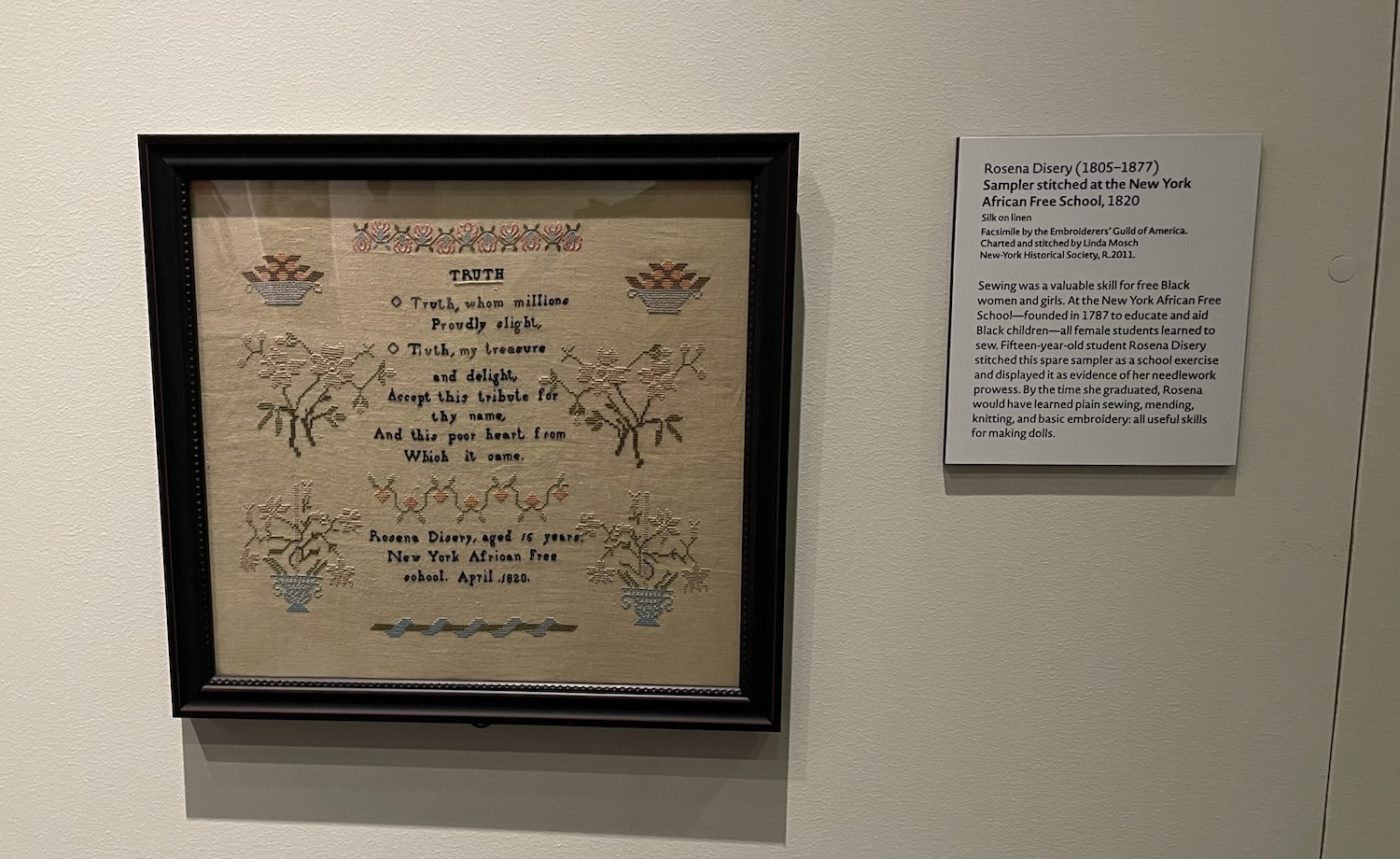 TRUTH
O Truth, whom millions
Proudly slight,
O Truth, my treasure
and delight,
Accept this tribute for
thy name,
And this poor heart from
Which it came.
Rosena Disery, aged 15 years.
New York African Free
school. April .1820.
Rosena Disery (1805–1877)
Sampler stitched at the New York
African Free School, 1820
Silk on linen
Facsimile by the Embroiderers' Guild of America.
Charted and stitched by Linda Mosch
New-York Historical Society, R.2011.
Sewing was a valuable skill for free Black
women and girls. At the New York African Free
School—founded in 1787 to educate and aid
Black children—all female students learned to
sew. Fifteen-year-old student Rosena Disery
stitched this spare sampler as a school exercise
and displayed it as evidence of her needlework
prowess. By the time she graduated, Rosena
would have learned plain sewing, mending,
knitting, and basic embroidery: all useful skills
for making dolls.